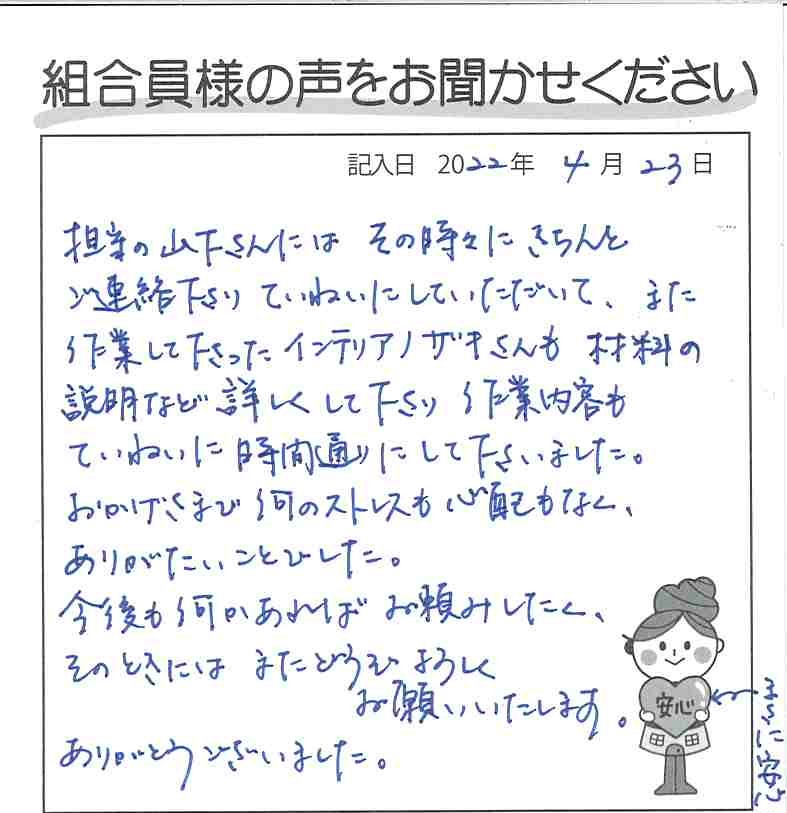 組合員様の声をお聞かせください
記入日 2022年 4月 23日
担当の山下さんには その時々にきちんと
ご連絡下さり ていねいにしていただいて、また
作業して下さったインテリアノザキさんも 材料の
説明など詳しくして下さり 作業内容も
ていねいに 時間通りにして下さいました。
おかげさまで何のストレスも心配もなく、
ありがたいことでした。
今後も何かあれば お頼みしたく、
そのときには またどうぞよろしく
お願いいたします。
ありがとうございました。
安心
まさに安心